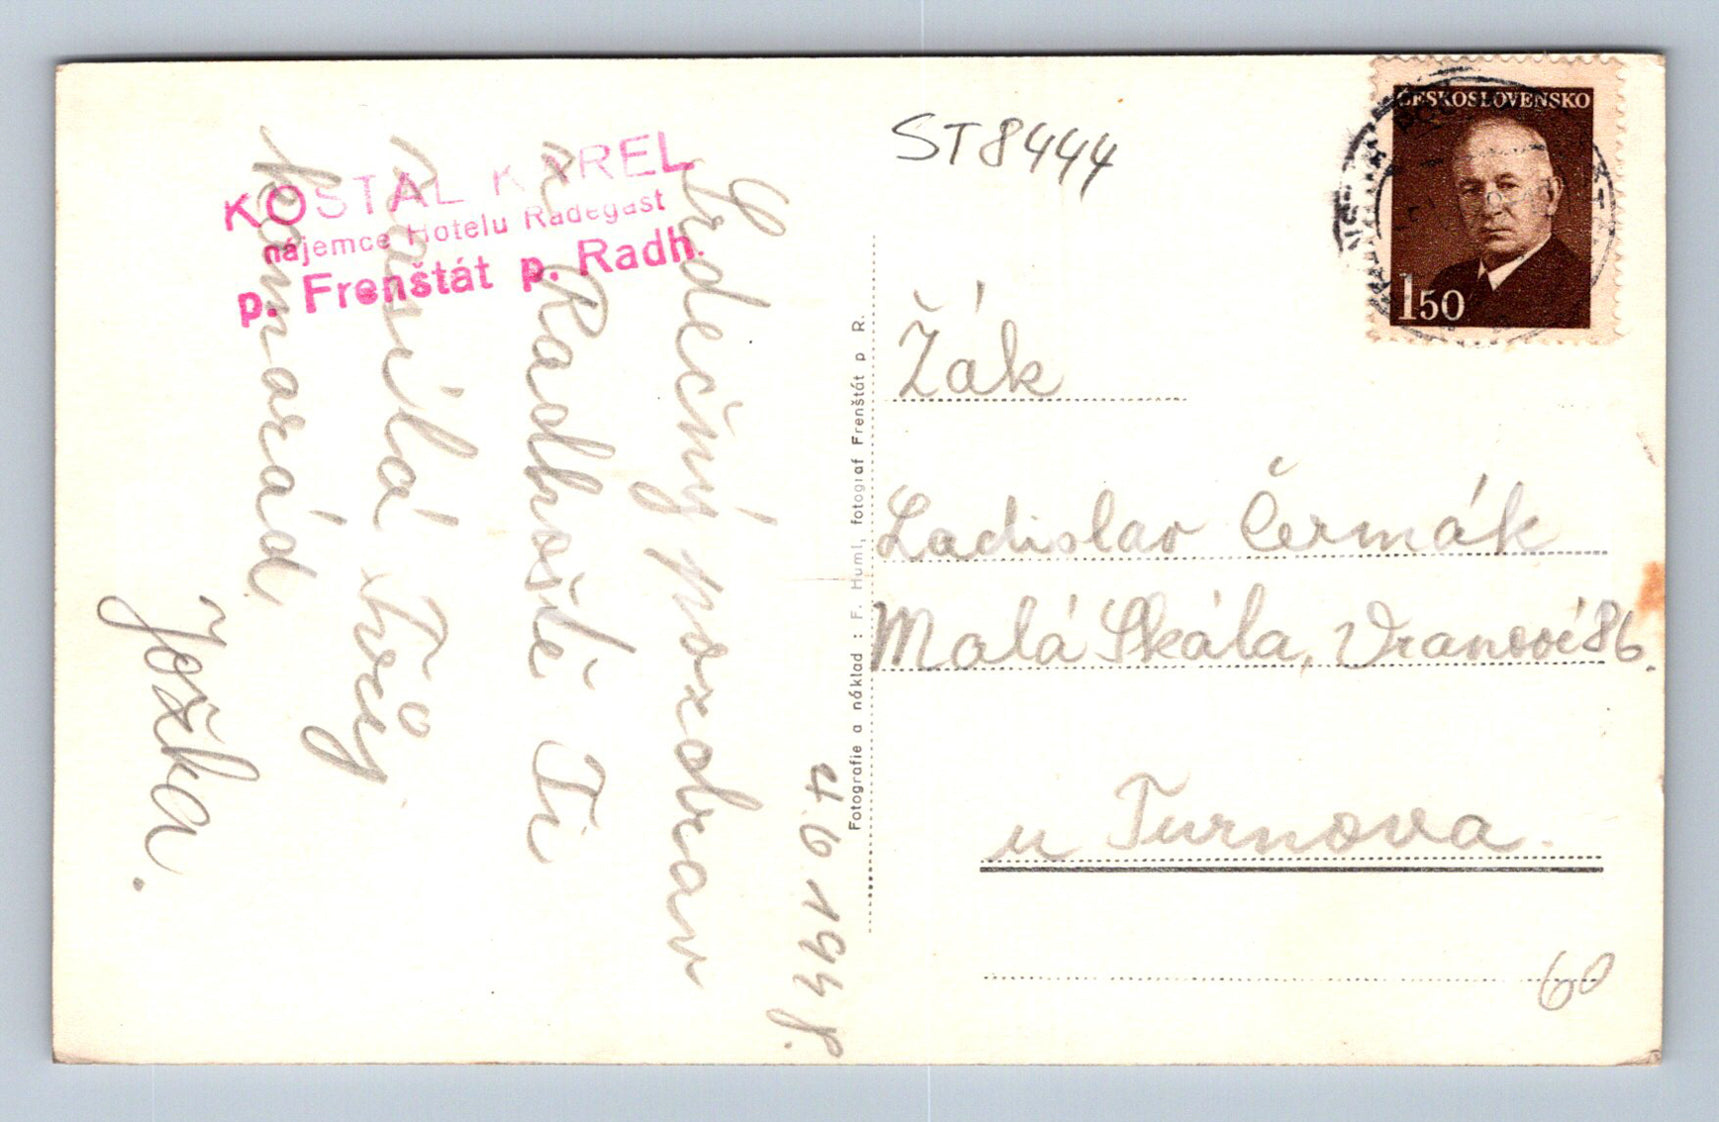 KOSTAL KAREL
nájemce Hotelu Radegast
p. Frenštát p. Radh.
4.6 1948.
Srdečný pozdrav
z Radhoště Ti
zasílá Tvůj
kamarád
Jožka.
Fotografie a náklad : F. Huml, fotograf Frenštát p R.
ST8444
ČESKOSLOVENSKO
150
Žák
Ladislav Čermák
Malá Skála, Vranové 86.
u Turnova.
60